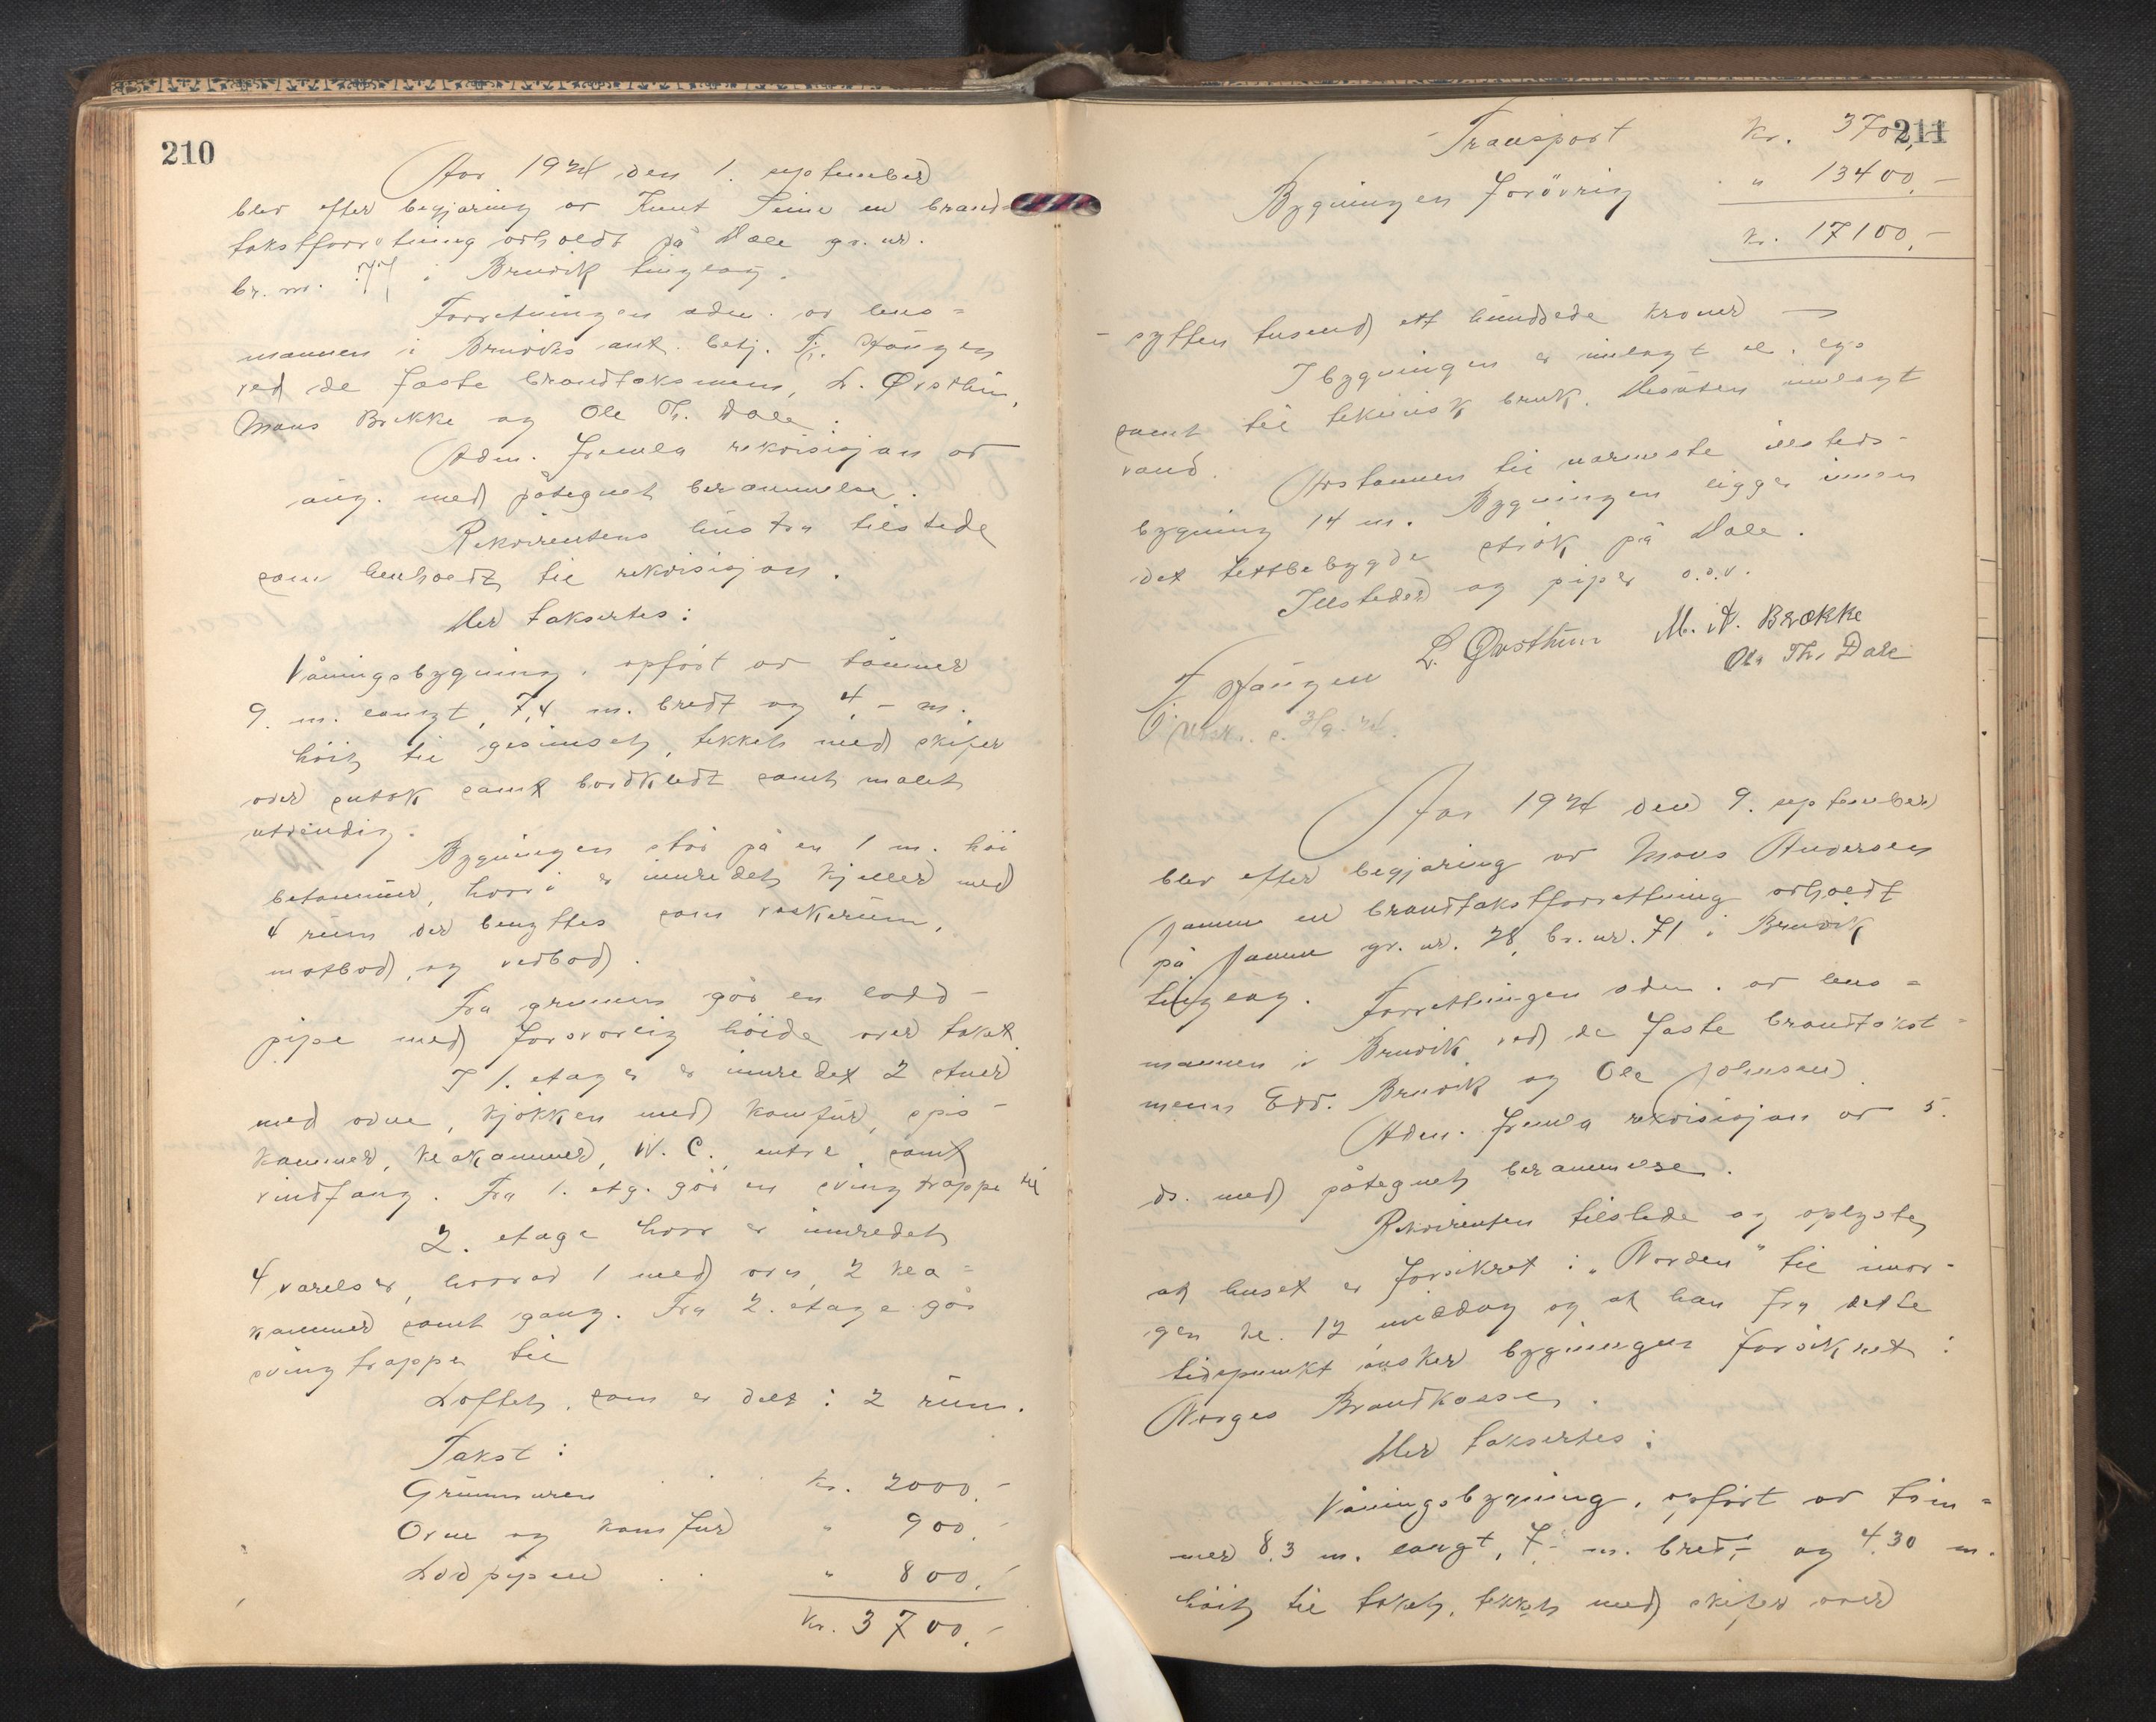 210
Aar 1924 den 1. september
blev efter begjæring av Knut Teine en brand-
takstforretning avholdt på Dale gr. nr.
br. nr. 77 i Bruvik tinglag.
Forretningen adm. av lens-
mannen i Bruviks aut. betj.
ved de faste brandtaksmenn, L. Øvsthun,
Mons Brekke og Ole Th. Dale.
Adm. fremla rekvisisjon av
aug. med påtegnet berammelse.
Rekvirentens hustru tilstede
som henholdt til rekvisisjon.
Her taksertes:
Våningsbygning, opført av tømmer
9 m. langt, 7,4 m. bredt og 4,- m.
høit til gesimset, tekket med skifer
over sutak samt bordkledt samt malet
utvendig.
Bygningen står på en 1 m. høi
betonmur, hvori er innredet kjeller med
4 rum der benyttes som vaskerum,
matbod, og vedbod.
Fra grunnen går en lodd-
pipe med forsvarlig høide over taket.
I 1. etage er innredet 2 stuer
med ovne, kjøkken med komfur, spis-
kammer, kleskammer, W.C., entre samt
vindfang. Fra 1. etg. går en svingtrappe til
2. etage hvor er innredet
4 værelser, hvorav 1 med ovn, 2 kle-
kammer samt gang. Fra 2. etage går
svingtrappe til
Loftet, som er delt i 2 rum.
Takst:
Grunnmuren . . . kr. 2000,-
Ovne og komfur " 900,-
Lodpipen . . " 800,-
kr. 3700,-
211
Transport kr. 3700,-
Bygningen forøvrig . " 13400,-
kr. 17100,-
- sytten tusend ett hundrede kroner -
I bygningen er innlagt el. lys
samt til teknisk bruk. Desuten innlagt
vand. Avstannen til nærmeste ildsteds-
bygning 14 m. Bygningen ligger innen
det tettbebygde strøk på Dale.
Ildsteder og piper o.s.v.
L. Øvsthun M. A. Brække
Ole Th. Dale
Utsk. s. 3/9. 24.
Aar 1924 den 9. september
blev efter begjæring av Mons Andersen
Jamne en brandtakstforrettning avholdt
på Jamne gr. nr. 28, br. nr. 71 i Bruvik
tinglag. Forrettningen adm. av lens-
mannen i Bruvik ved de faste brandtakst-
menn Edv. Bruvik og Ole Johnsen.
Adm. fremla rekvisisjon av 5.
ds. med påtegnet berammelse.
Rekvirenten tilstede og oplyste
at huset er forsikret i "Norden" til imor-
gen kl. 12 middag og at han fra dette
tidspunkt ønsker bygningen forsikret i
Norges Brandkasse.
Her taksertes:
Våningsbygning, opført av tøm-
mer 8,3 m. langt, 7,- m. bredt, og 4,30 m.
høit til taket, tekket med skifer over